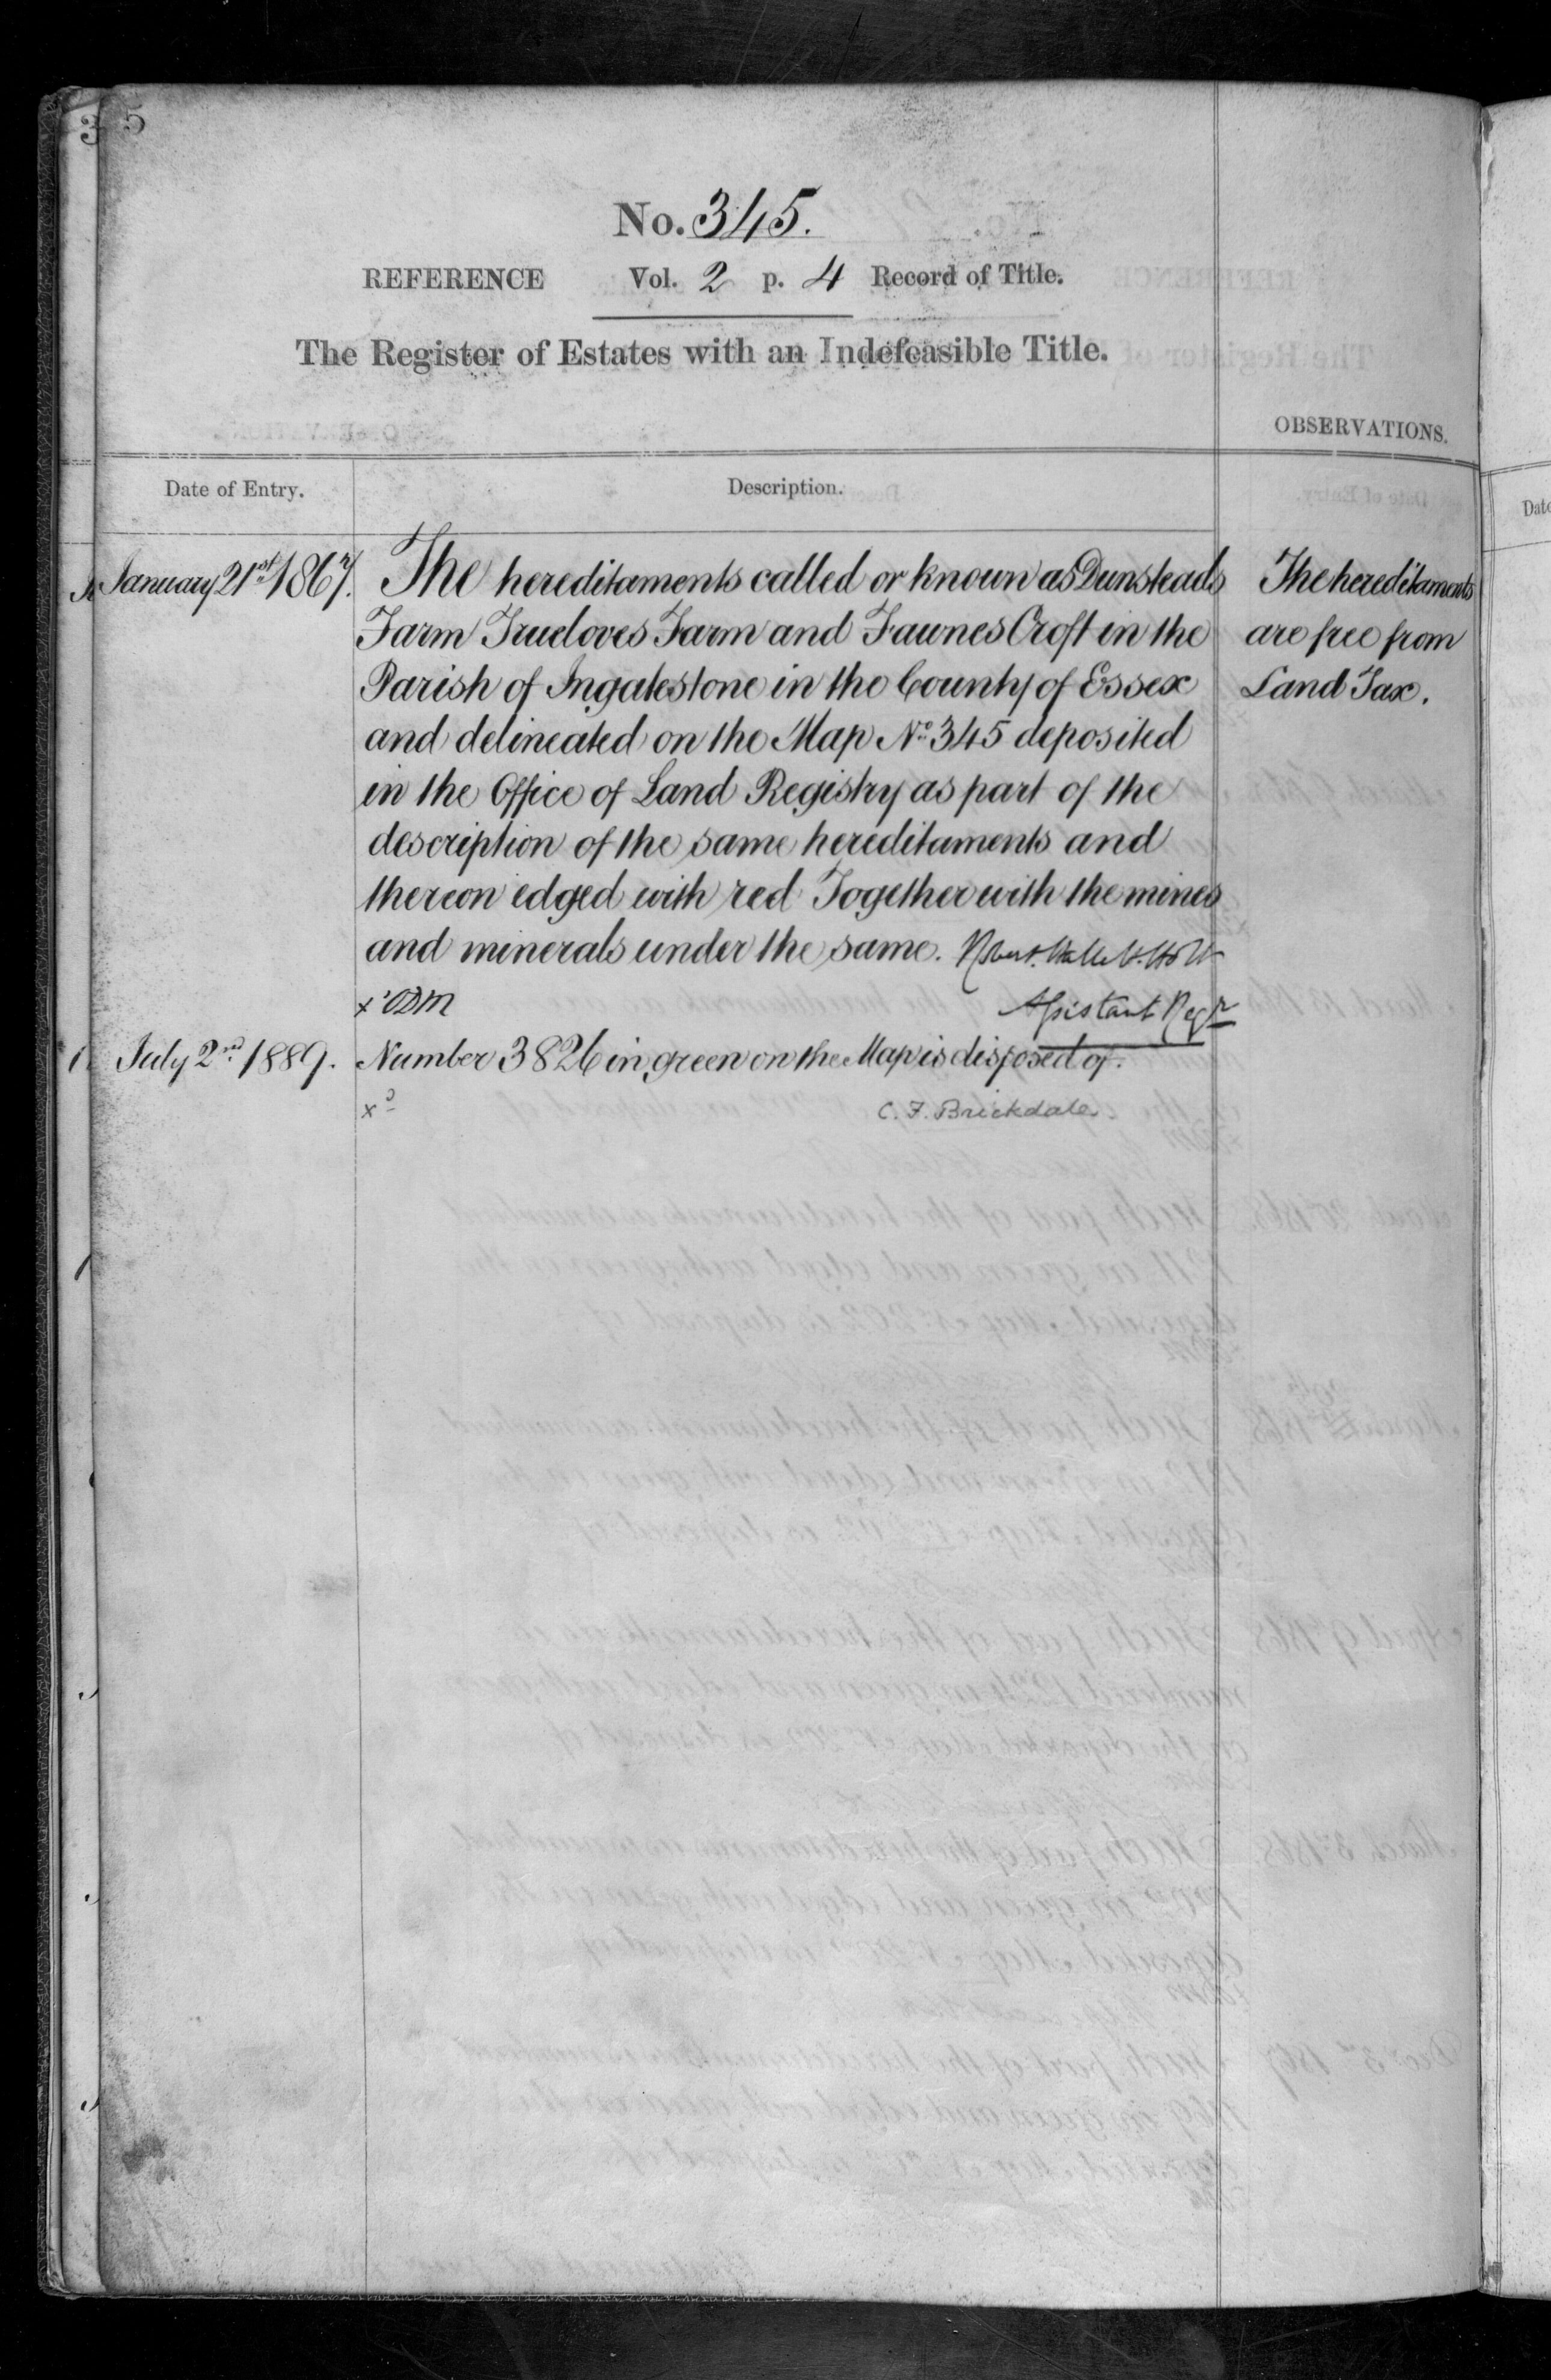 5
No. 345.
REFERENCE Vol. 2 p. 4 Record of Title.
The Register of Estates with an Indefeasible Title.
OBSERVATIONS.
Date of Entry. Description.
January 21st 1867. The hereditaments called or known as Dunsteads
Farm Trueloves Farm and Fawnes Croft in the
Parish of Ingatestone in the County of Essex
and delineated on the Map No. 345 deposited
in the Office of Land Registry as part of the
description of the same hereditaments and
thereon edged with red Together with the mines
and minerals under the same. Robert Hallett Holt
Assistant Regr
The hereditaments
are free from
Land Tax.
July 2nd 1889. Number 3826 in green on the Map is disposed of.
C. F. Brickdale.